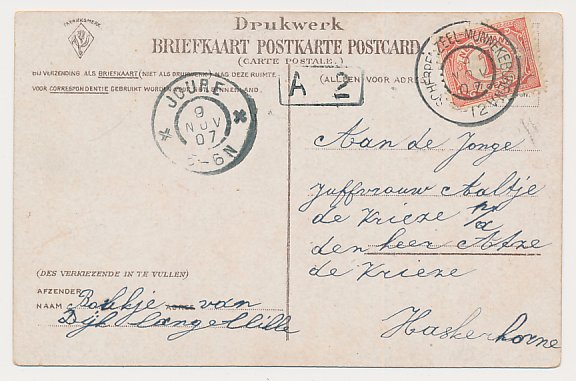 FABRIEKSMERK
Drukwerk
BRIEFKAART POSTKARTE POSTCARD
(CARTE POSTALE.)
BIJ VERZENDING ALS BRIEFKAART (NIET ALS DRUKWERK) MAG DEZE RUIMTE
VOOR CORRESPONDENTIE GEBRUIKT WORDEN
(ALLEEN VOOR ADRES
JOURE
9
NOV
07
5-6N
A 2
SCHERPENZEEL-MUNNEKEBUREN
07
12
Aan de Jonge
Juffvrouw Aaltje
de Krieze p/a
den heer Atze
de Krieze
Haskerhorne
(DES VERKIEZENDE IN TE VULLEN)
AFZENDER
NAAM Baukje van
Dijk Langelille